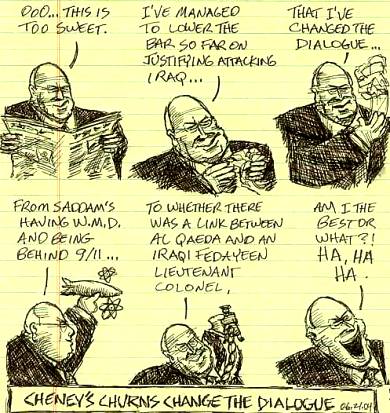 OOO... THIS IS
TOO SWEET.
I'VE MANAGED
TO LOWER THE
BAR SO FAR ON
JUSTIFYING ATTACKING
IRAQ...
THAT I'VE
CHANGED THE
DIALOGUE...
FROM SADDAM'S
HAVING W.M.D.
AND BEING
BEHIND 9/11...
TO WHETHER THERE
WAS A LINK BETWEEN
AL QAEDA AND AN
IRAQI FEDAYEEN
LIEUTENANT
COLONEL,
AM I THE
BEST OR
WHAT?!
HA, HA
HA.
CHENEY'S CHURNS CHANGE THE DIALOGUE 06.21.04